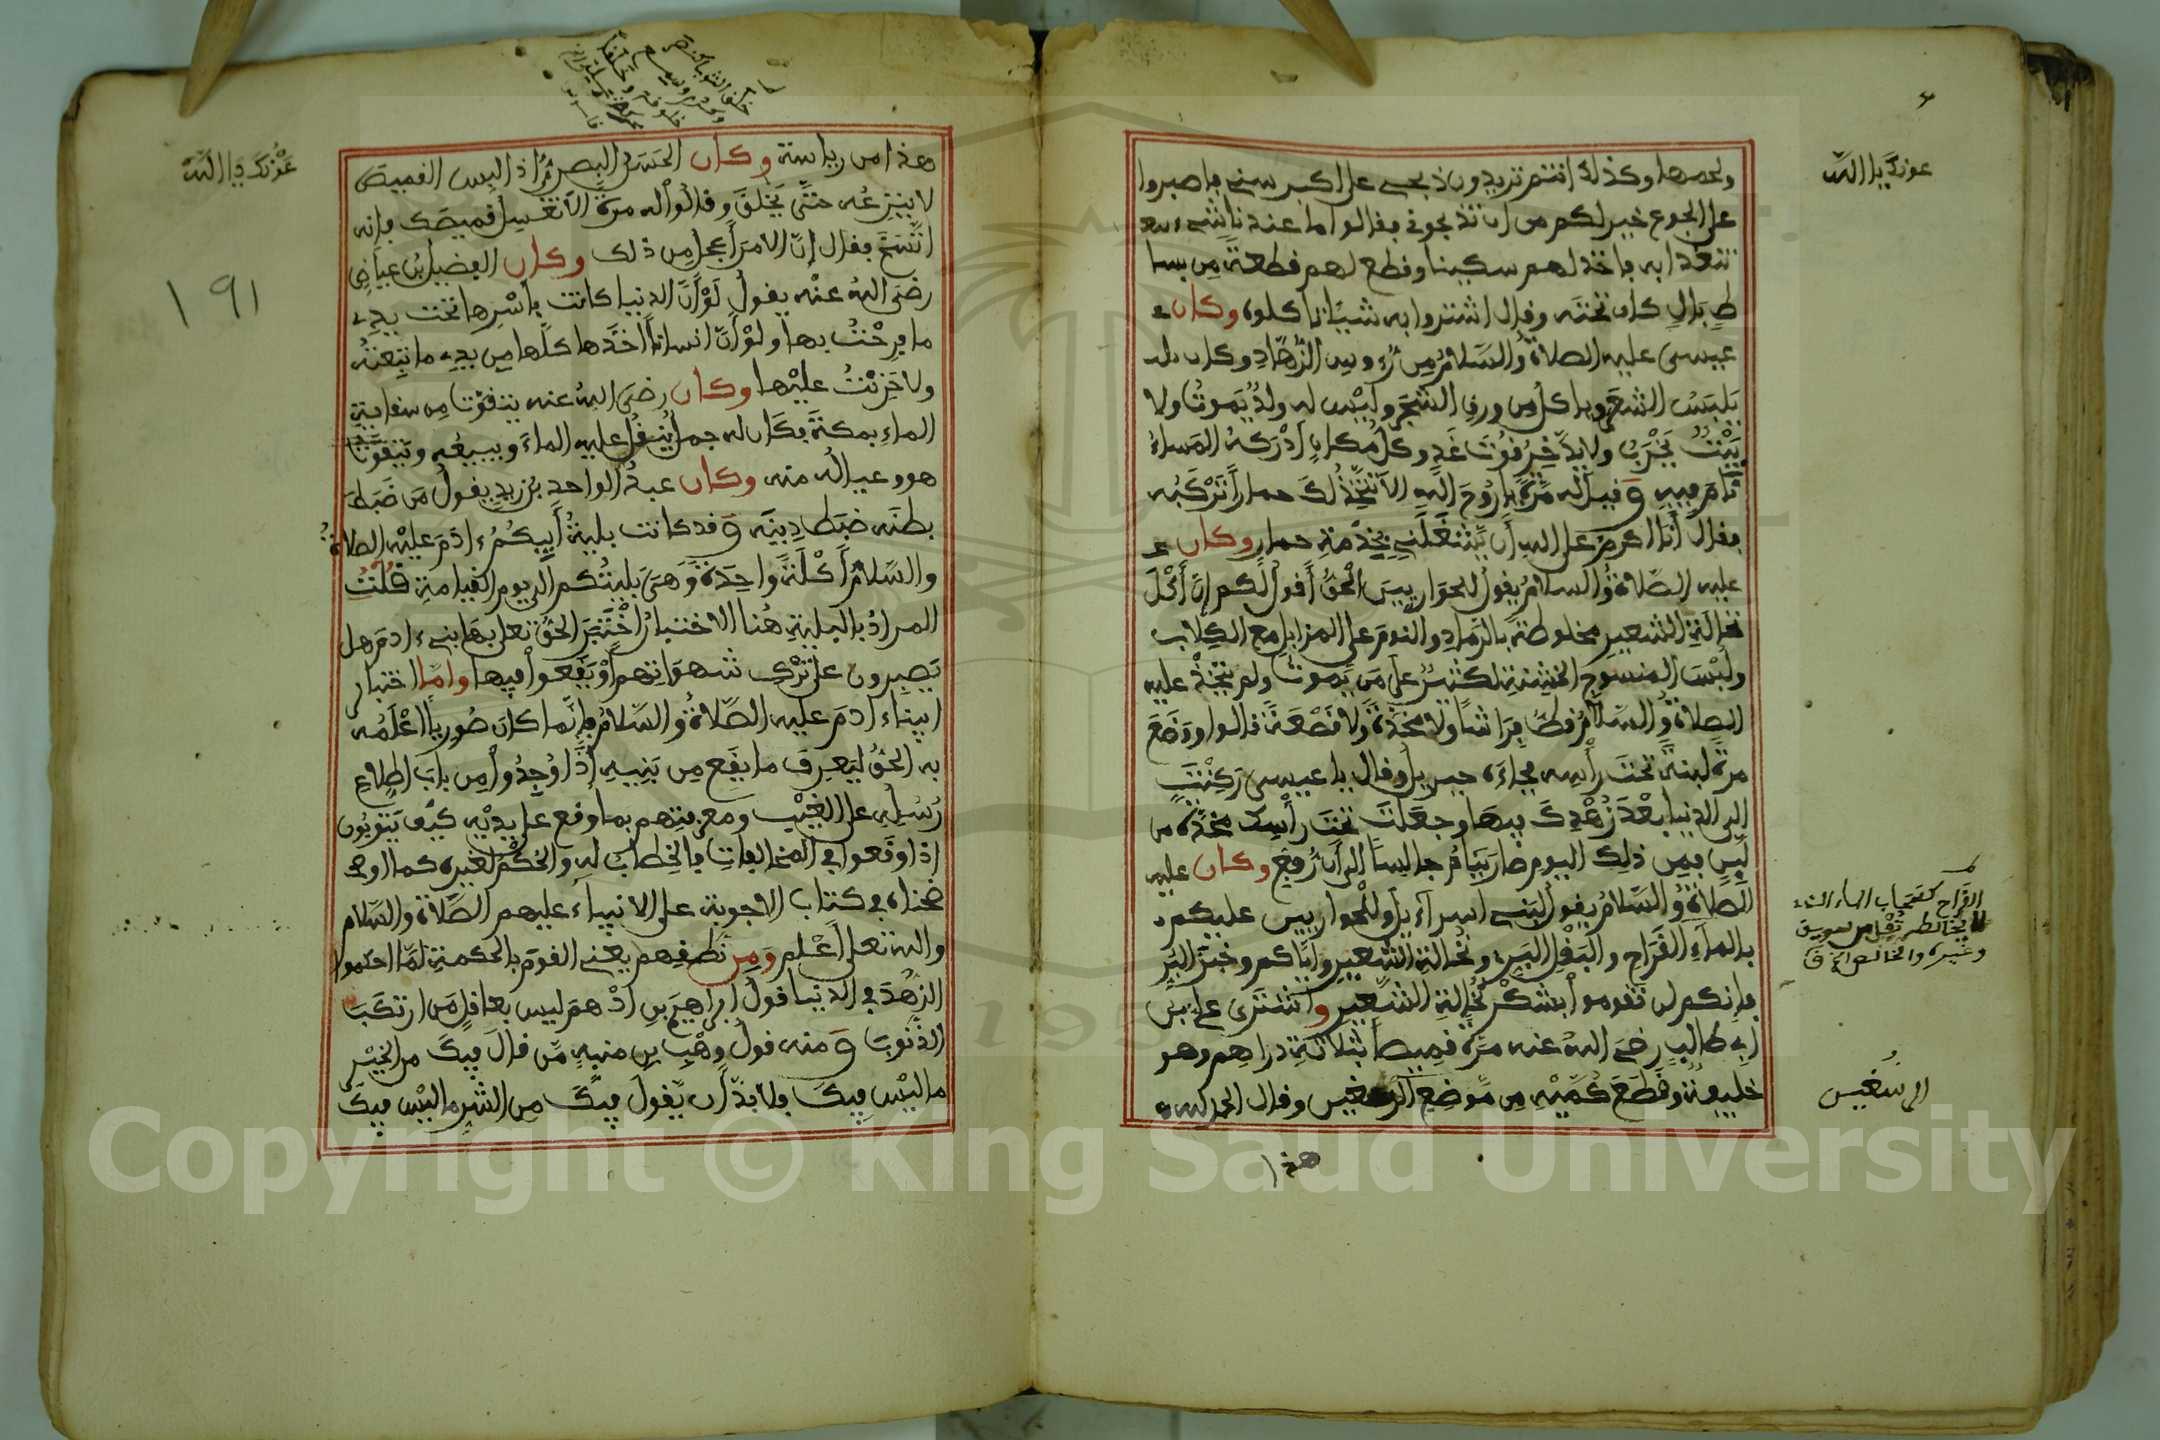 عونك يا الله
ولحمها وكذلك انتم تريدون ذبحي على اكبر سني فاصبروا
على الجوع خير لكم من ان تذبحوني فقالوا ما عندنا شيء
نتغدا به فاخذ لهم سكينا وقطع لهم قطعة من بسا
ط بال كان تحته وقال اشتروا به شيئا ناكلوه وكان
عيسى عليه الصلاة والسلام من رءوس الزهاد وكان
يلبس الشعر وياكل من ورق الشجر وليس له ولد يموت ولا
بيت يخرب ولا يدخر قوت غد وكل مكان ادركه المساء
نام فيه وقيل له مرة يا روح الله الا تتخذ لك حمارا تركبه
فقال أنا اكرم على الله أن يشغلني بخدمة حمار وكان
عليه الصلاة والسلام يقول للحواريين الحق أقول لكم إن أكل
نخالة الشعير مخلوطة بالرماد والنوم على المزابل مع الكلاب
ولبس المنسوج الخشنة لكثير على من يموت ولم يتخذ عليه
الصلاة والسلام قط فراشا ولا مخدة ولا قصعة قالوا ووضع
مرة لبنة تحت رأسه فجاءه جبريل وقال يا عيسى ركنت
الى الدنيا بعد زهدك فيها وجعلت تحت رأسك مخدة من
لبن فمن ذلك اليوم صار ينام جالسا الى أن رفع وكان عليه
الصلاة والسلام يقول لبني اسراءيل وللحواريين عليكم
بالماء القراح والبقل البري ونخالة الشعير واياكم وخبز البر
فانكم لن تقوموا بشكر نخالة الشعير واشترى علي بن
ابي طالب رضي الله عنه مرة قميصا بثلاثة دراهم وهو
خليفة وقطع كميه من موضع الرسغين وقال الحمد لله
هذا
القراح كسحاب الماء
لا يخالطه ثفل من سويق
وغيره والخالص
الرسغين
عونك يا الله
١٩١
هذا من رياسته وكان الحسن البصري اذا لبس القميص
لا ينزعه حتى يخلق وقالوا له مرة الا تغسل قميصك فإنه
اتسخ فقال إن الامر أعجل من ذلك وكان الفضيل بن عياض
رضي الله عنه يقول لو أن الدنيا كانت بأسرها تحت يدي
ما فرحت بها ولو أن انسانا أخذها كلها من يدي ما تبعته
ولا حزنت عليها وكان رضي الله عنه يتقوت من سقاية
الماء بمكة فكان له جمل ينقل عليه الماء ويبيعه ويتقوت
هو وعياله منه وكان عبد الواحد بن زيد يقول من ضبط
بطنه ضبط دينه وقد كانت بلية أبيكم ءادم عليه الصلاة
والسلام أكلة واحدة وهي بليتكم الى يوم القيامة قلت
المراد بالبلية هنا الاختبار اختبر الحق تعلى بها بني ءادم هل
يصبرون على ترك شهواتهم أو يقعوا فيها واما اختبار
ابينا ءادم عليه الصلاة والسلام فإنما كان صوريا أعلمه
به الحق ليعرف ما يقع من بنيه اذا وجدوا من باب اطلاع
رسله على الغيب ومعرفتهم بما وقع على يديه كيف يتوبون
اذا وقعوا في المخالفات فالخطاب له والحكم لغيره كما اوضـ
ضحناه في كتاب الاجوبة على الانبياء عليهم الصلاة والسلام
والله تعلى أعلم ومن نطقهم يعني القوم بالحكمة لما احكموا
الزهد في الدنيا قول ابراهيم بن ادهم ليس بعاقل من ارتكب
الذنوب ومنه قول وهب بن منبه من قال فيك من الخير
ما ليس فيك فلا بد أن يقول فيك من الشر ما ليس فيك
Copyright © King Saud University